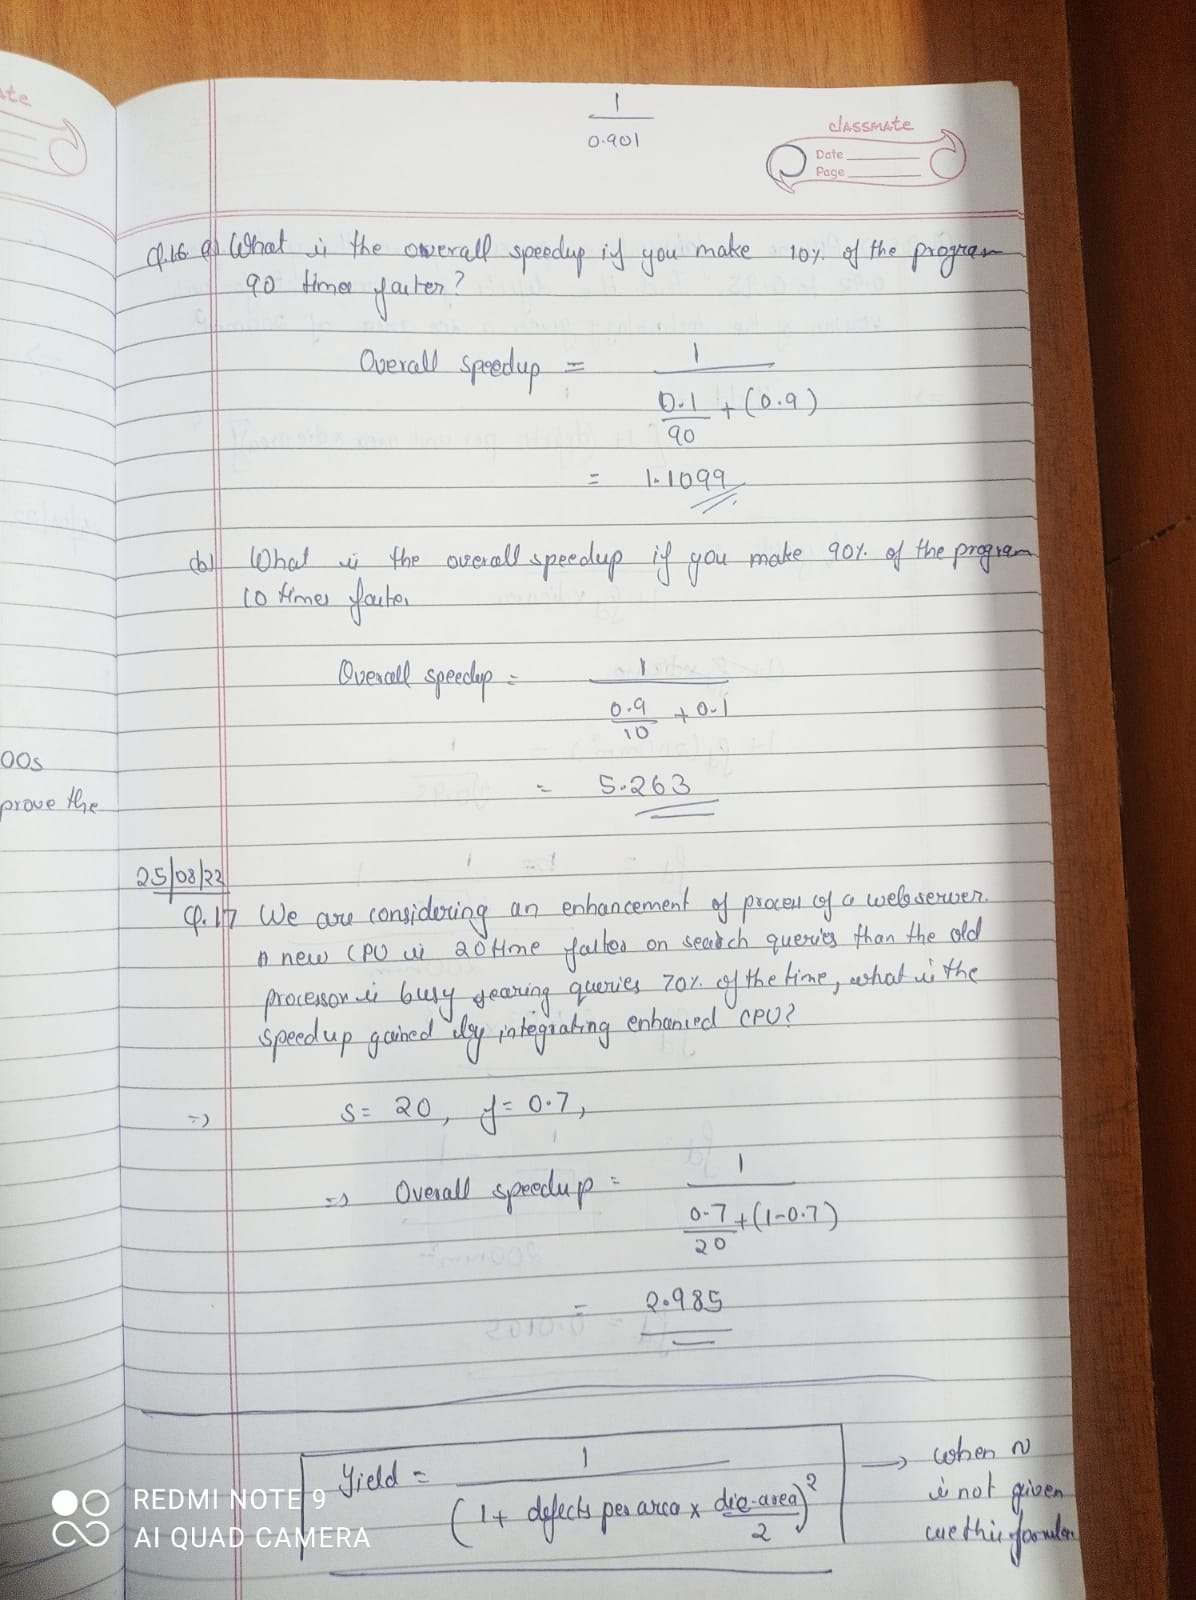 ate
1
0.901
classmate
Date
Page
Q.16 a) What is the overall speedup if you make 10% of the program
90 times faster?
Overall speedup = 1 / (0.1/90 + (0.9))
= 1.1099
(b) What is the overall speedup if you make 90% of the program
10 times faster
Overall speedup = 1 / (0.9/10 + 0.1)
= 5.263
00s
prove the
25/08/22
Q.17 We are considering an enhancement of proces of a webserver.
A new CPU is 20 time faster on search queries than the old
processor is busy searing queries 70% of the time, what is the
speedup gained by integrating enhanced CPU?
=> s = 20, f = 0.7,
=> Overall speedup = 1 / (0.7/20 + (1-0.7))
= 2.985
Yield = 1 / (1 + defects per area x die-area/2)² → when N
is not given
use this formula
REDMI NOTE 9
AI QUAD CAMERA